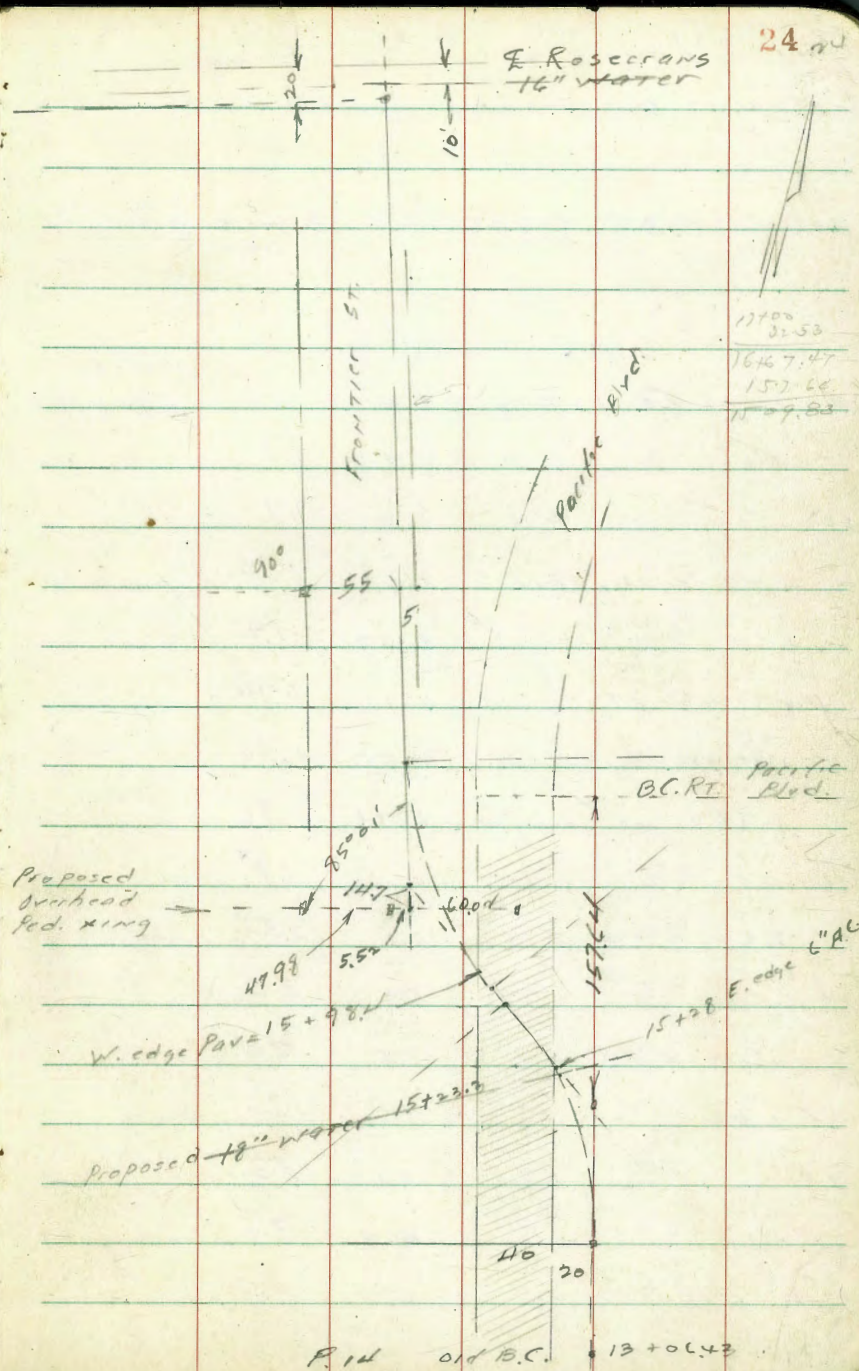 24
℄ Rosecrans
16" water
20
10'
FRONTIER ST.
17+00
32.53
16+67.47
157.64
15+09.83
Pacific Blvd.
90°
55
5
B.C. RT. Pacific
Blvd.
85°01'
Proposed
Overhead
Ped. xing
14.7
60.04
47.98
5.52
157.64
6" AC
W. edge Pav = 15+98.4
15+28 E. edge
Proposed 18" water 15+23.2
40
20
P. 14 Old B.C. 13+06.43